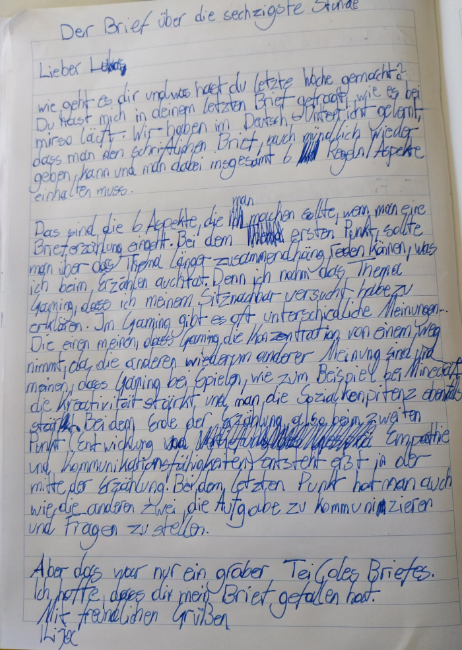 Der Brief über die sechzigste Stunde
Lieber
wie geht es dir und was hast du letzte Woche gemacht?
Du hast mich in deinem letzten Brief gefragt, wie es bei
mir so läuft. Wir haben im Deutsch-Unterricht gelernt,
dass man den schriftlichen Brief, auch mündlich wieder
geben, kann und man dabei insgesamt 6 Regeln/Aspekte
einhalten muss.
Das sind die 6 Aspekte, die man machen sollte, wenn man eine
Brieferzählung eingeht. Bei dem ersten Punkt, sollte
man über das Thema länger zusammenhängend reden können, was
ich beim Erzählen auch tat. Denn ich nahm das Thema
Gaming, dass ich meinem Sitznachbar versucht habe zu
erklären. Im Gaming gibt es oft unterschiedliche Meinungen.
Die einen meinen, dass Gaming, die Konzentration von einem, weg
nimmt, da die anderen wiederum anderer Meinung sind und
meinen, dass Gaming bei Spielen, wie zum Beispiel bei Minecraft,
die Kreativität stärkt, und man die Sozialkompitenz ebenfalls
stärkt. Bei dem Ende der Erzählung, also beim zweiten
Punkt (Entwicklung von Empathie
und Kommunikationsfähigkeiten) entsteht erst in der
mitte der Erzählung. Bei dem letzten Punkt hat man auch
wie die anderen zwei die Aufgabe zu kommunizieren
und Fragen zu stellen.
Aber das war nur ein grober Teil des Briefes.
Ich hoffe, dass dir mein Brief gefallen hat.
Mit freundlichen Grüßen